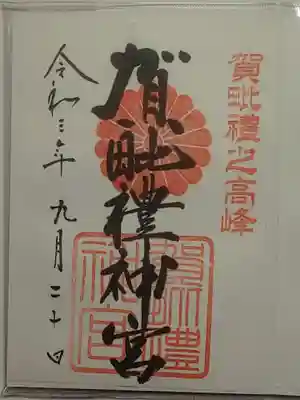 賀毗禮之高峰
賀毗禮神宮
令和三年九月二十日
賀毗禮神宮